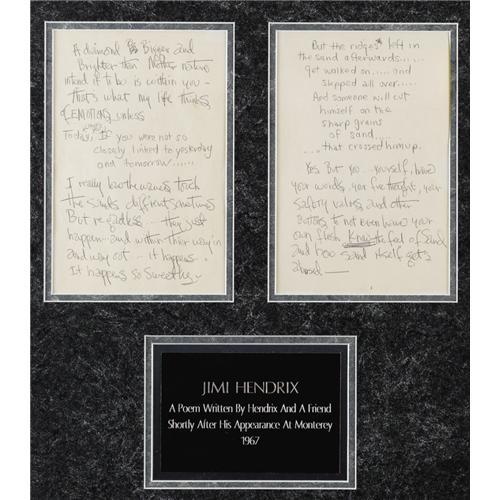 A diamond Is Bigger and
Brighter than Mother nature
intend it to be is within you -
that's what my life thinks,
EMOTIONS, unless
Today, If you were not so
closely linked to yesterday
and tomorrow......
I really the waves touch
the Sands different sometimes
But regardless -- they just
happen - and within their way in
and way out -- it happens.
It happens so Sweetly -
But the ridges left in
the sand afterwards......
get walked on...... and
stepped all over.....
And someone will cut
himself on the
sharp grains
of sand....
that crossed him up.
Yes But you... yourself, have
your words, your thought, your
safety valves and other
buttons to not even have your
own flesh Know the feel of Sand
and too sand itself gets
abused —
JIMI HENDRIX
A Poem Written By Hendrix And A Friend
Shortly After His Appearance At Monterey
1967